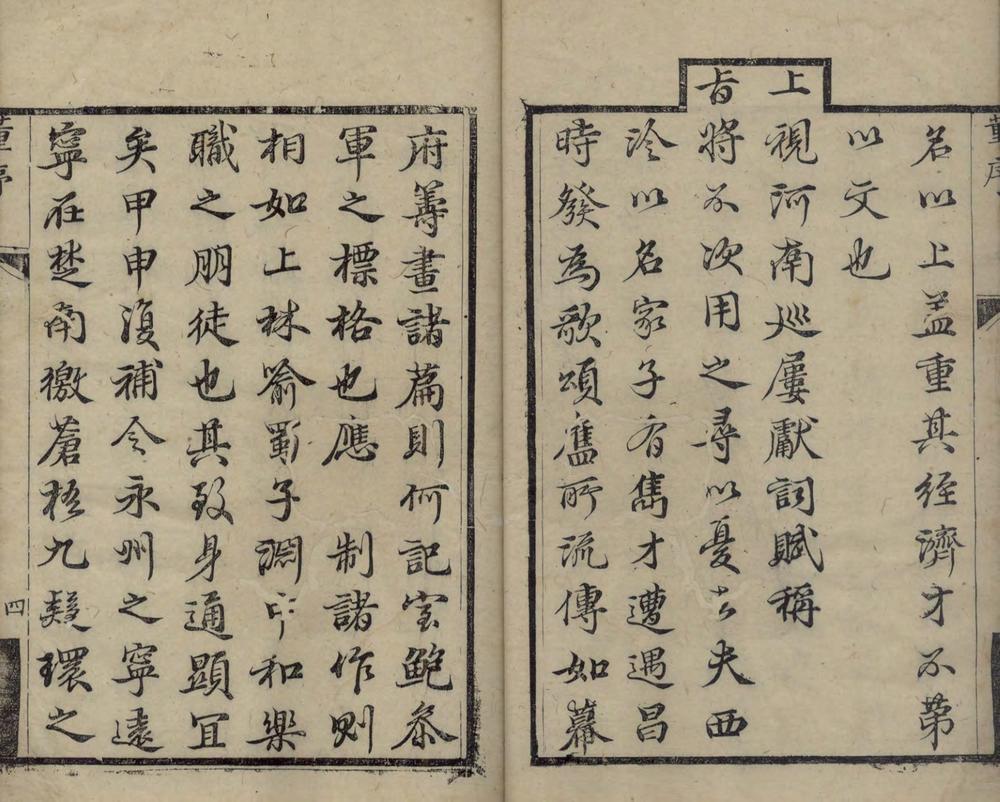 名以上盖重其經濟才不第
以文也
上視河南巡屢獻詞賦稱
旨將不次用之尋以憂去夫西
泠以名家子有雋才遭遇昌
時發為歌頌舊所流傳如幕
府籌畫諸篇則何記室鮑叅
軍之標格也應 制諸作則
相如上林喻蜀子淵中和樂
職之朋徒也其致身通顯宜
矣甲申復補令永州之寧遠
寧在楚南徼蒼梧九疑環之
董序
四